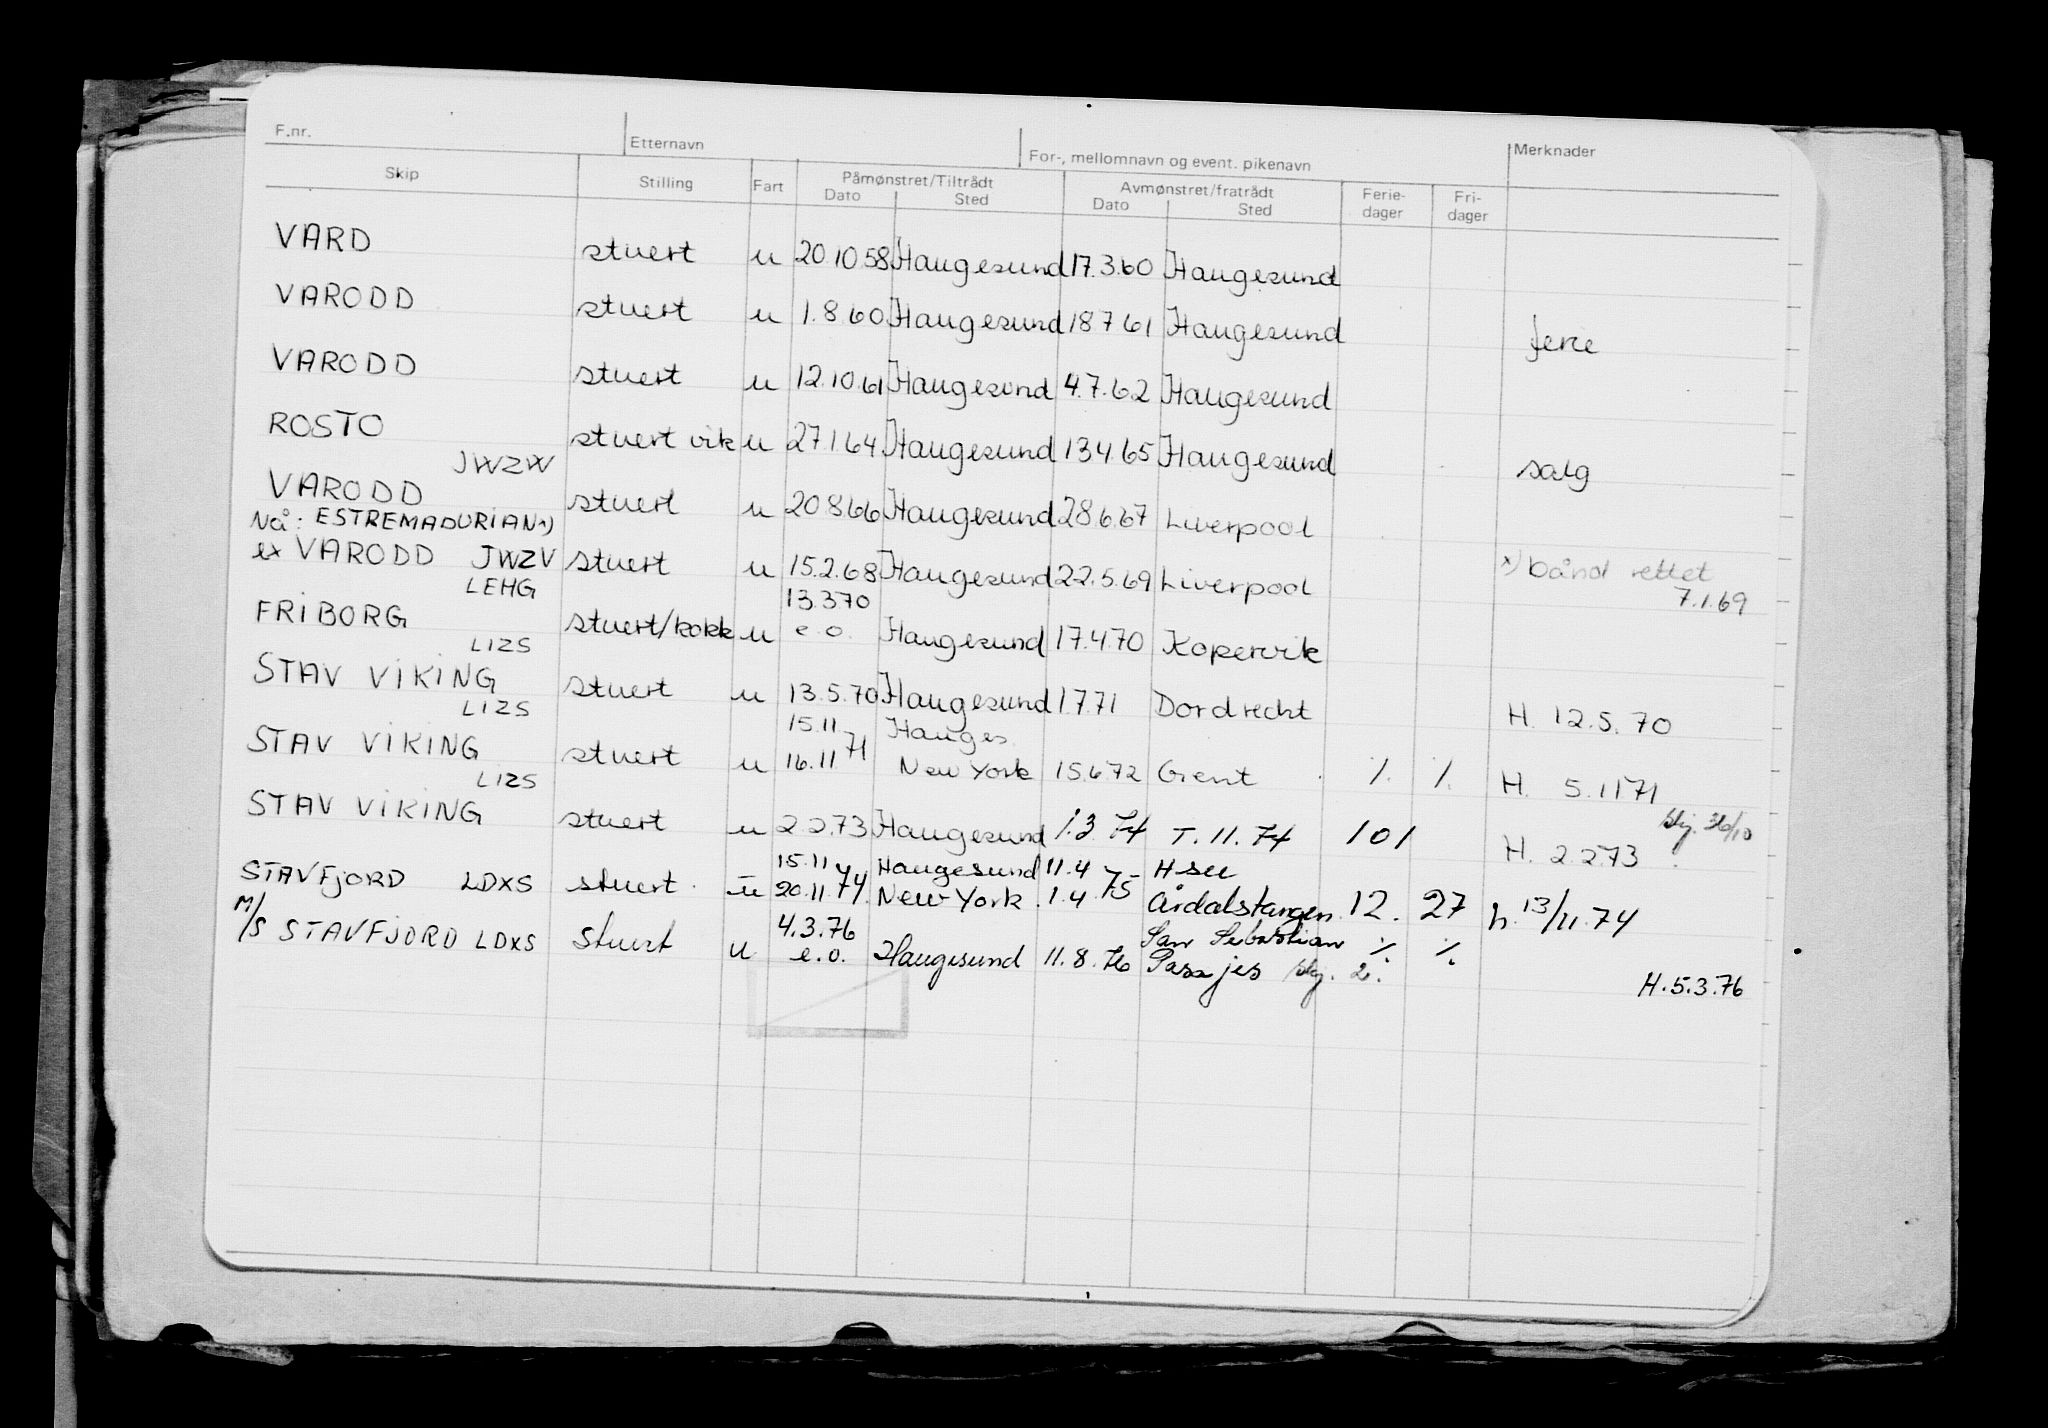 F.nr. Etternavn For-, mellomnavn og event. pikenavn Merknader
Skip Stilling Fart Påmønstret/Tiltrådt Avmønstret/fratrådt Ferie-dager Fri-dager
Dato Sted Dato Sted
VARD stuert u 20.10.58 Haugesund 17.3.60 Haugesund
VARODD stuert u 1.8.60 Haugesund 18 7 61 Haugesund ferie
VARODD stuert u 12.10.61 Haugesund 4.7.62 Haugesund
ROSTO stuert vik u 27 1 64 Haugesund 13 4 65 Haugesund salg
JWZW
VARODD stuert u 20 8 66 Haugesund 28 6.67 Liverpool
Nå: ESTREMADURIAN x)
ex VARODD JWZV stuert u 15.2.68 Haugesund 22.5.69 Liverpool x) bånd rettet
7.1.69
LEHG 13.3 70
FRIBORG stuert/kokk u e.o. Haugesund 17.4.70 Kopervik
LIZS
STAV VIKING stuert u 13.5.70 Haugesund 1.7.71 Dordrecht H. 12.5.70
LIZS 15.11 Hauges.
STAV VIKING stuert u 16.11 71 New York 15.6.72 Gent ⁒ ⁒ H. 5.11 71
LIZS
STAV VIKING stuert u 2.2.73 Haugesund 1.3.74 T. 11.74 101 H. 2.2.73
15.11 Haugesund 11.4 Hsu
STAVFJORD LDXS stuert u 20.11.74 New York 1.4 75 Årdalstangen 12. 27 h. 13/11.74
4.3.76 San Sebastian ⁒ ⁒
M/S STAVFJORD LDXS Stuert u e.o. Haugesund 11.8.76 Pasajes H.5.3.76